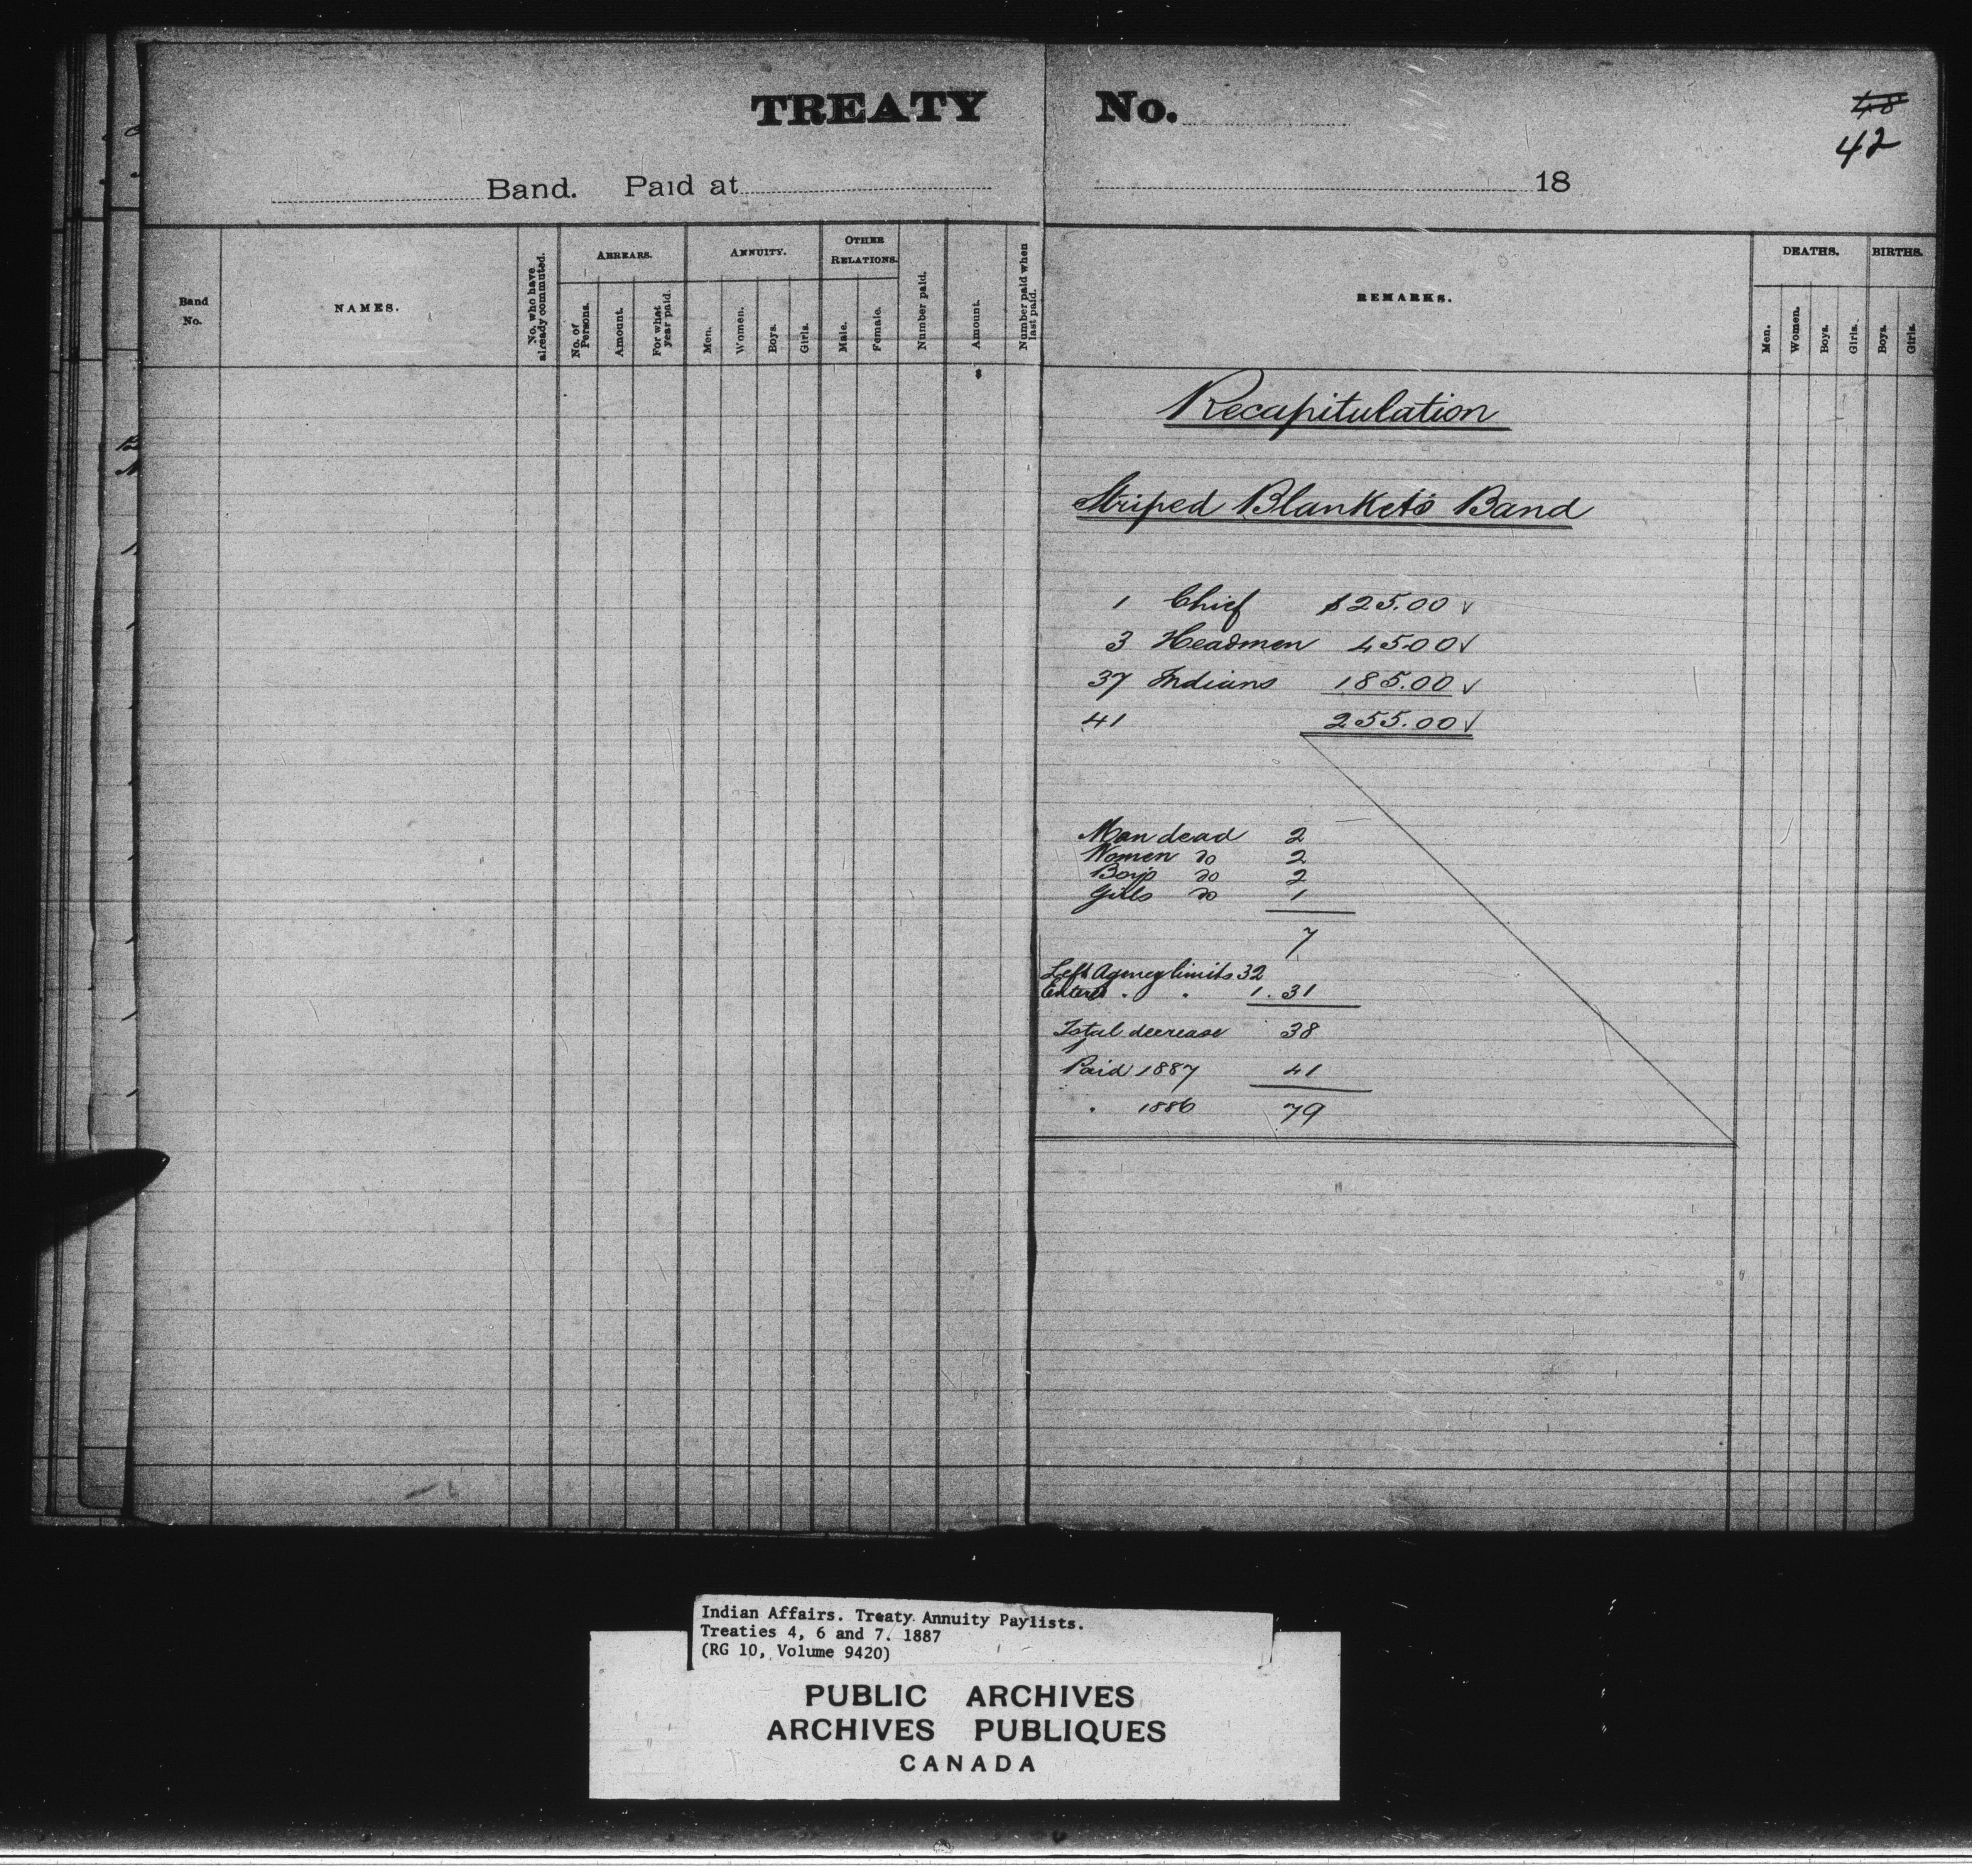 TREATY No.
48
42
Band. Paid at 18
Band No.
NAMES.
No. who have already commuted.
ARREARS.
No. of Persons.
Amount.
For what year paid.
ANNUITY.
Men.
Women.
Boys.
Girls.
OTHER RELATIONS.
Male.
Female.
Number paid.
Amount.
Number paid when last paid.
REMARKS.
DEATHS.
Men.
Women.
Boys.
Girls.
BIRTHS.
Boys.
Girls.
Recapitulation
Striped Blanket's Band
1 Chief $25.00 ✓
3 Headmen 45.00 ✓
37 Indians 185.00 ✓
41 255.00 ✓
Men dead 2
Women do 2
Boys do 2
Girls do 1
7
Left Agency limits 32
Entered " " 1. 31
Total decrease 38
Paid 1887 41
" 1886 79
Indian Affairs. Treaty Annuity Paylists.
Treaties 4, 6 and 7. 1887
(RG 10, Volume 9420)
PUBLIC ARCHIVES
ARCHIVES PUBLIQUES
CANADA